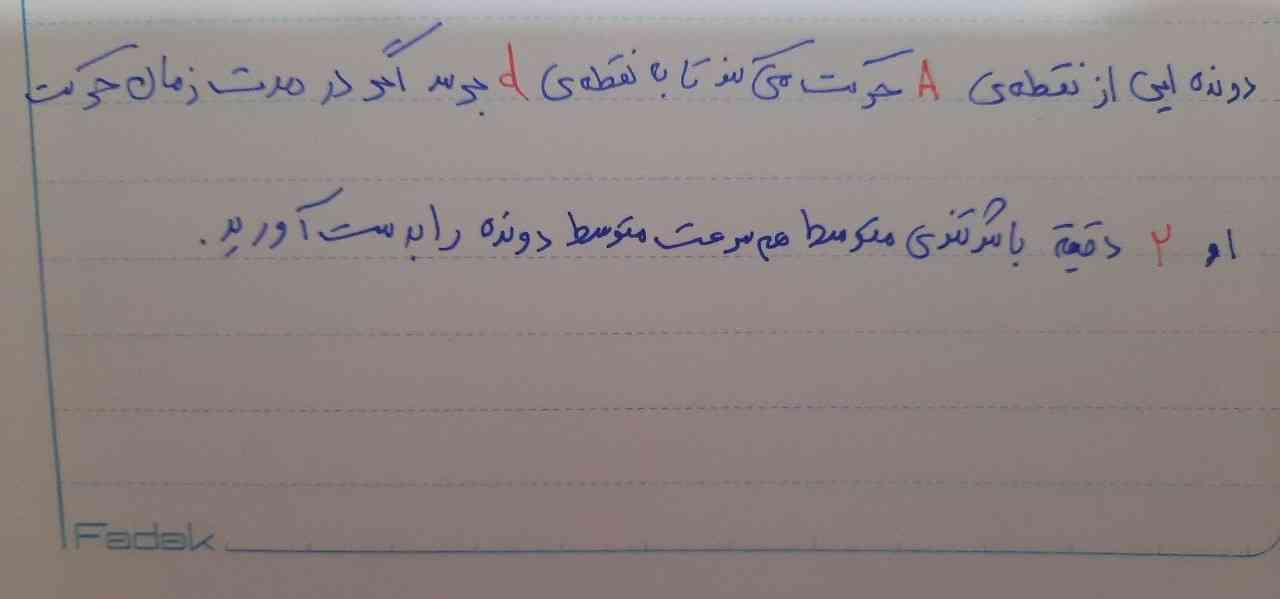 دونده ایی از نقطه‌ی A حرکت می کند تا به نقطه‌ی d برسد اگر در مدت زمان حرکت
او ۲ دقیقه باشد تندی متوسط هم سرعت متوسط دونده را بدست آورید.
Fadak